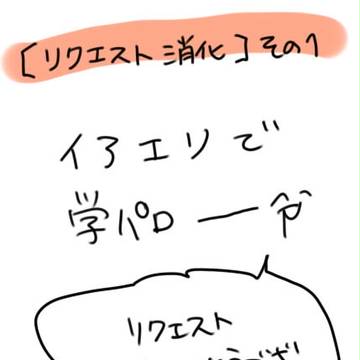 [リクエスト消化]その1
イアエリで
学パロ
リクエスト